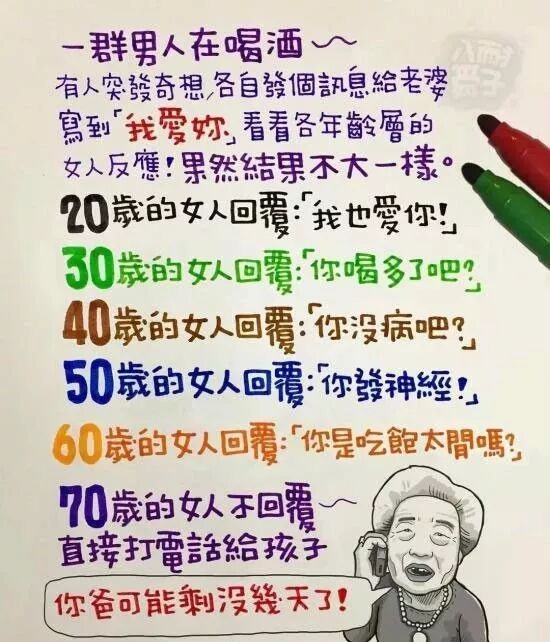 一群男人在喝酒～
有人突發奇想,各自發個訊息給老婆
寫到「我愛妳」看看各年齡層的
女人反應!果然結果不大一樣。
20歲的女人回覆:「我也愛你!」
30歲的女人回覆:「你喝多了吧?」
40歲的女人回覆:「你沒病吧?」
50歲的女人回覆:「你發神經!」
60歲的女人回覆:「你是吃飽太閒嗎?」
70歲的女人不回覆～
直接打電話給孩子
你爸可能剩沒幾天了!